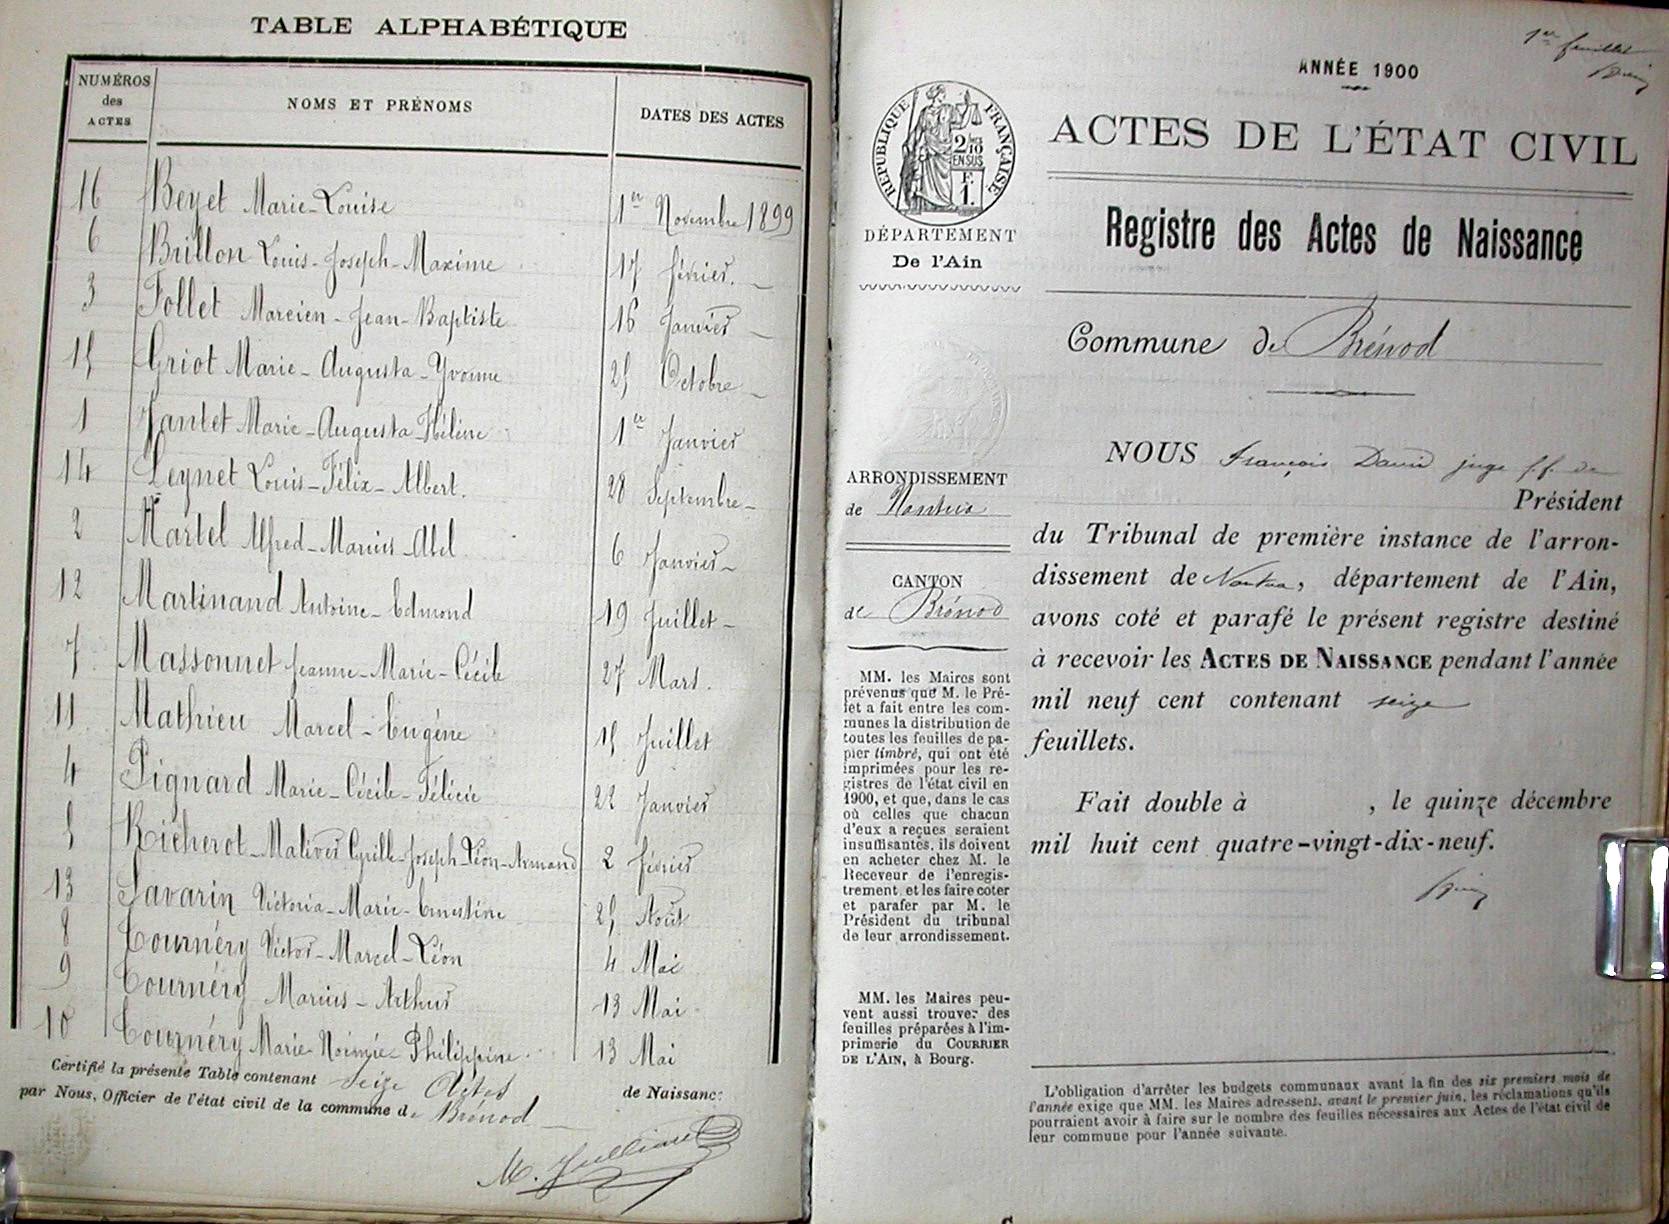 TABLE ALPHABÉTIQUE
NUMÉROS des ACTES NOMS ET PRÉNOMS DATES DES ACTES
16 Beyet Marie-Louise 1er Novembre 1899
6 Brillon Louis-Joseph-Maxime 17 février.
3 Follet Marcien-Jean-Baptiste 16 Janvier
15 Griot Marie-Augusta-Yvonne 25 Octobre
1 Jantet Marie-Augusta-Hélène 1er Janvier
14 Leynet Louis-Félix-Albert. 28 Septembre
2 Martel Alfred-Marius-Abel 6 Janvier
12 Martinand Antoine-Edmond 19 Juillet
7 Massonnet Jeanne-Marie-Cécile 27 Mars.
11 Mathieu Marcel-Eugène 15 Juillet
4 Pignard Marie-Cécile-Félicie 22 Janvier
5 Richerot-Malivers Cyrille-Joseph-Léon-Armand 2 février
13 Savarin Victoria-Marie-Ernestine 25 Août
8 Tournéry Victor-Marcel-Léon 4 Mai
9 Tournéry Marius-Arthur 13 Mai
10 Tournéry Marie-Noémie-Philippine 13 Mai
Certifié la présente Table contenant Seize Actes de Naissance
par Nous, Officier de l'état civil de la commune de Brénod
M. Julliard
1er feuillet
ANNÉE 1900
RÉPUBLIQUE FRANÇAISE
2/10
EN SUS
F.
1.
DÉPARTEMENT
De l'Ain
ACTES DE L'ÉTAT CIVIL
Registre des Actes de Naissance
Commune de Brénod
ARRONDISSEMENT
de Nantua
CANTON
de Brénod
MM. les Maires sont
prévenus que M. le Pré-
fet a fait entre les com-
munes la distribution de
toutes les feuilles de pa-
pier timbré, qui ont été
imprimées pour les re-
gistres de l'état civil en
1900, et que, dans le cas
où celles que chacun
d'eux a reçues seraient
insuffisantes, ils doivent
en acheter chez M. le
Receveur de l'enregis-
trement et les faire coter
et parafer par M. le
Président du tribunal
de leur arrondissement.
MM. les Maires peu-
vent aussi trouver des
feuilles préparées à l'im-
primerie du COURRIER
DE L'AIN, à Bourg.
NOUS François David juge f.f. de
Président
du Tribunal de première instance de l'arron-
dissement de Nantua, département de l'Ain,
avons coté et parafé le présent registre destiné
à recevoir les ACTES DE NAISSANCE pendant l'année
mil neuf cent contenant seize
feuillets.
Fait double à , le quinze décembre
mil huit cent quatre-vingt-dix-neuf.
L'obligation d'arrêter les budgets communaux avant la fin des six premiers mois de
l'année exige que MM. les Maires adressent, avant le premier juin, les réclamations qu'ils
pourraient avoir à faire sur le nombre des feuilles nécessaires aux Actes de l'état civil de
leur commune pour l'année suivante.